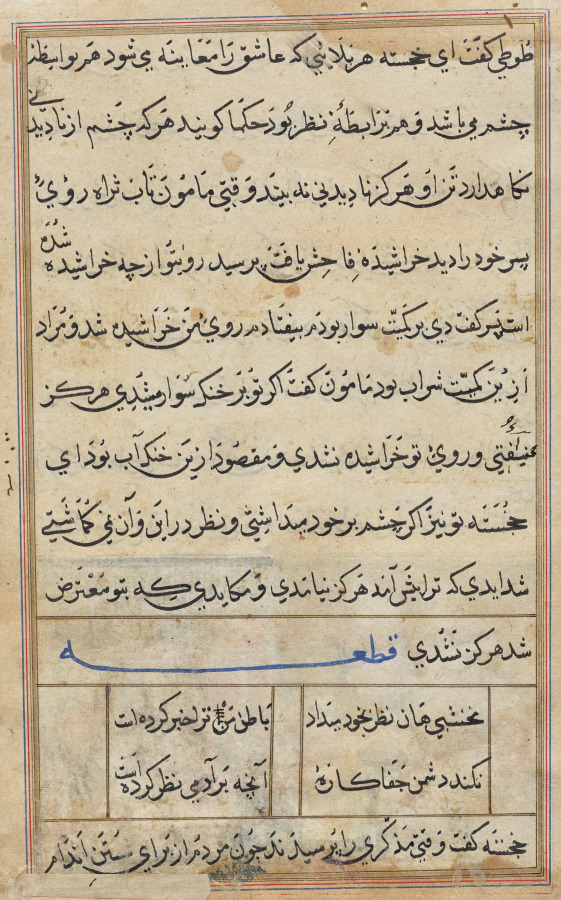 طوطی کفت ای خجسته هر بلائی که عاشق را معاینه می شود هم بواسطهٔ
چشم می باشد و هم برابطهٔ نظر بود حکما کویند هر که چشم از نادیدنی
نکاهدارد تن او هرکز نادیدنی نه بیند وقتی مامون تاب تراه روی
پسر خود را دید خراشیده فاحش یافت پرسید روی تو از چه خراشیده شده
است پسر کفت دی بر کمیت سوار بودم بیفتادم روی من خراشیده شد و مراد
ازین کمیت شراب بود مامون کفت اکر تو بر خنک سوار میشدی هرکز
نیفتی و روی تو خراشیده نشدی و مقصود ازین خنک آب بود ای
خجسته تو نیز اکر چشم بر خود میداشتی و نظر در این و آن نمی کماشتی
شدایدی که ترا پیش آمد هرکز نیامدی و مکایدی که بتو معترض
شد هرکز نشدی قطعه
نخشبی هان نظر بخود میداد باطن من ترا خبر کرده است
نکند دشمن جفا کاره آنچه بر آدمی نظر کرده است
خجسته کفت وقتی مذکری را پرسیدند چون مردم از برای شستن اندام